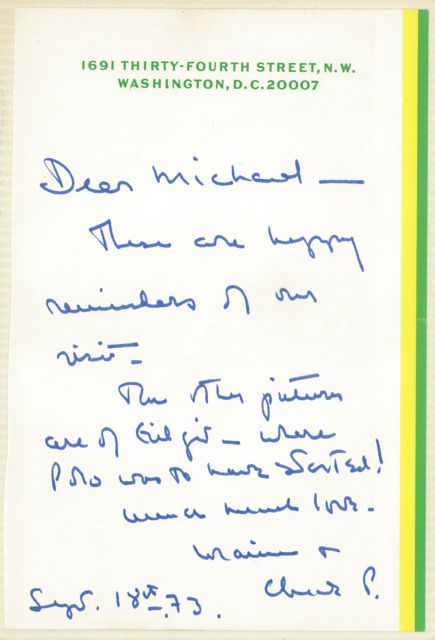 1691 THIRTY-FOURTH STREET, N.W.
WASHINGTON, D.C. 20007
Dear Michael —
These are happy
reminders of our
visit –
The other pictures
are of Gilgit – where
Polo was to have started!
much love.
& 
Chuck P.
Sept. 18th. 73.